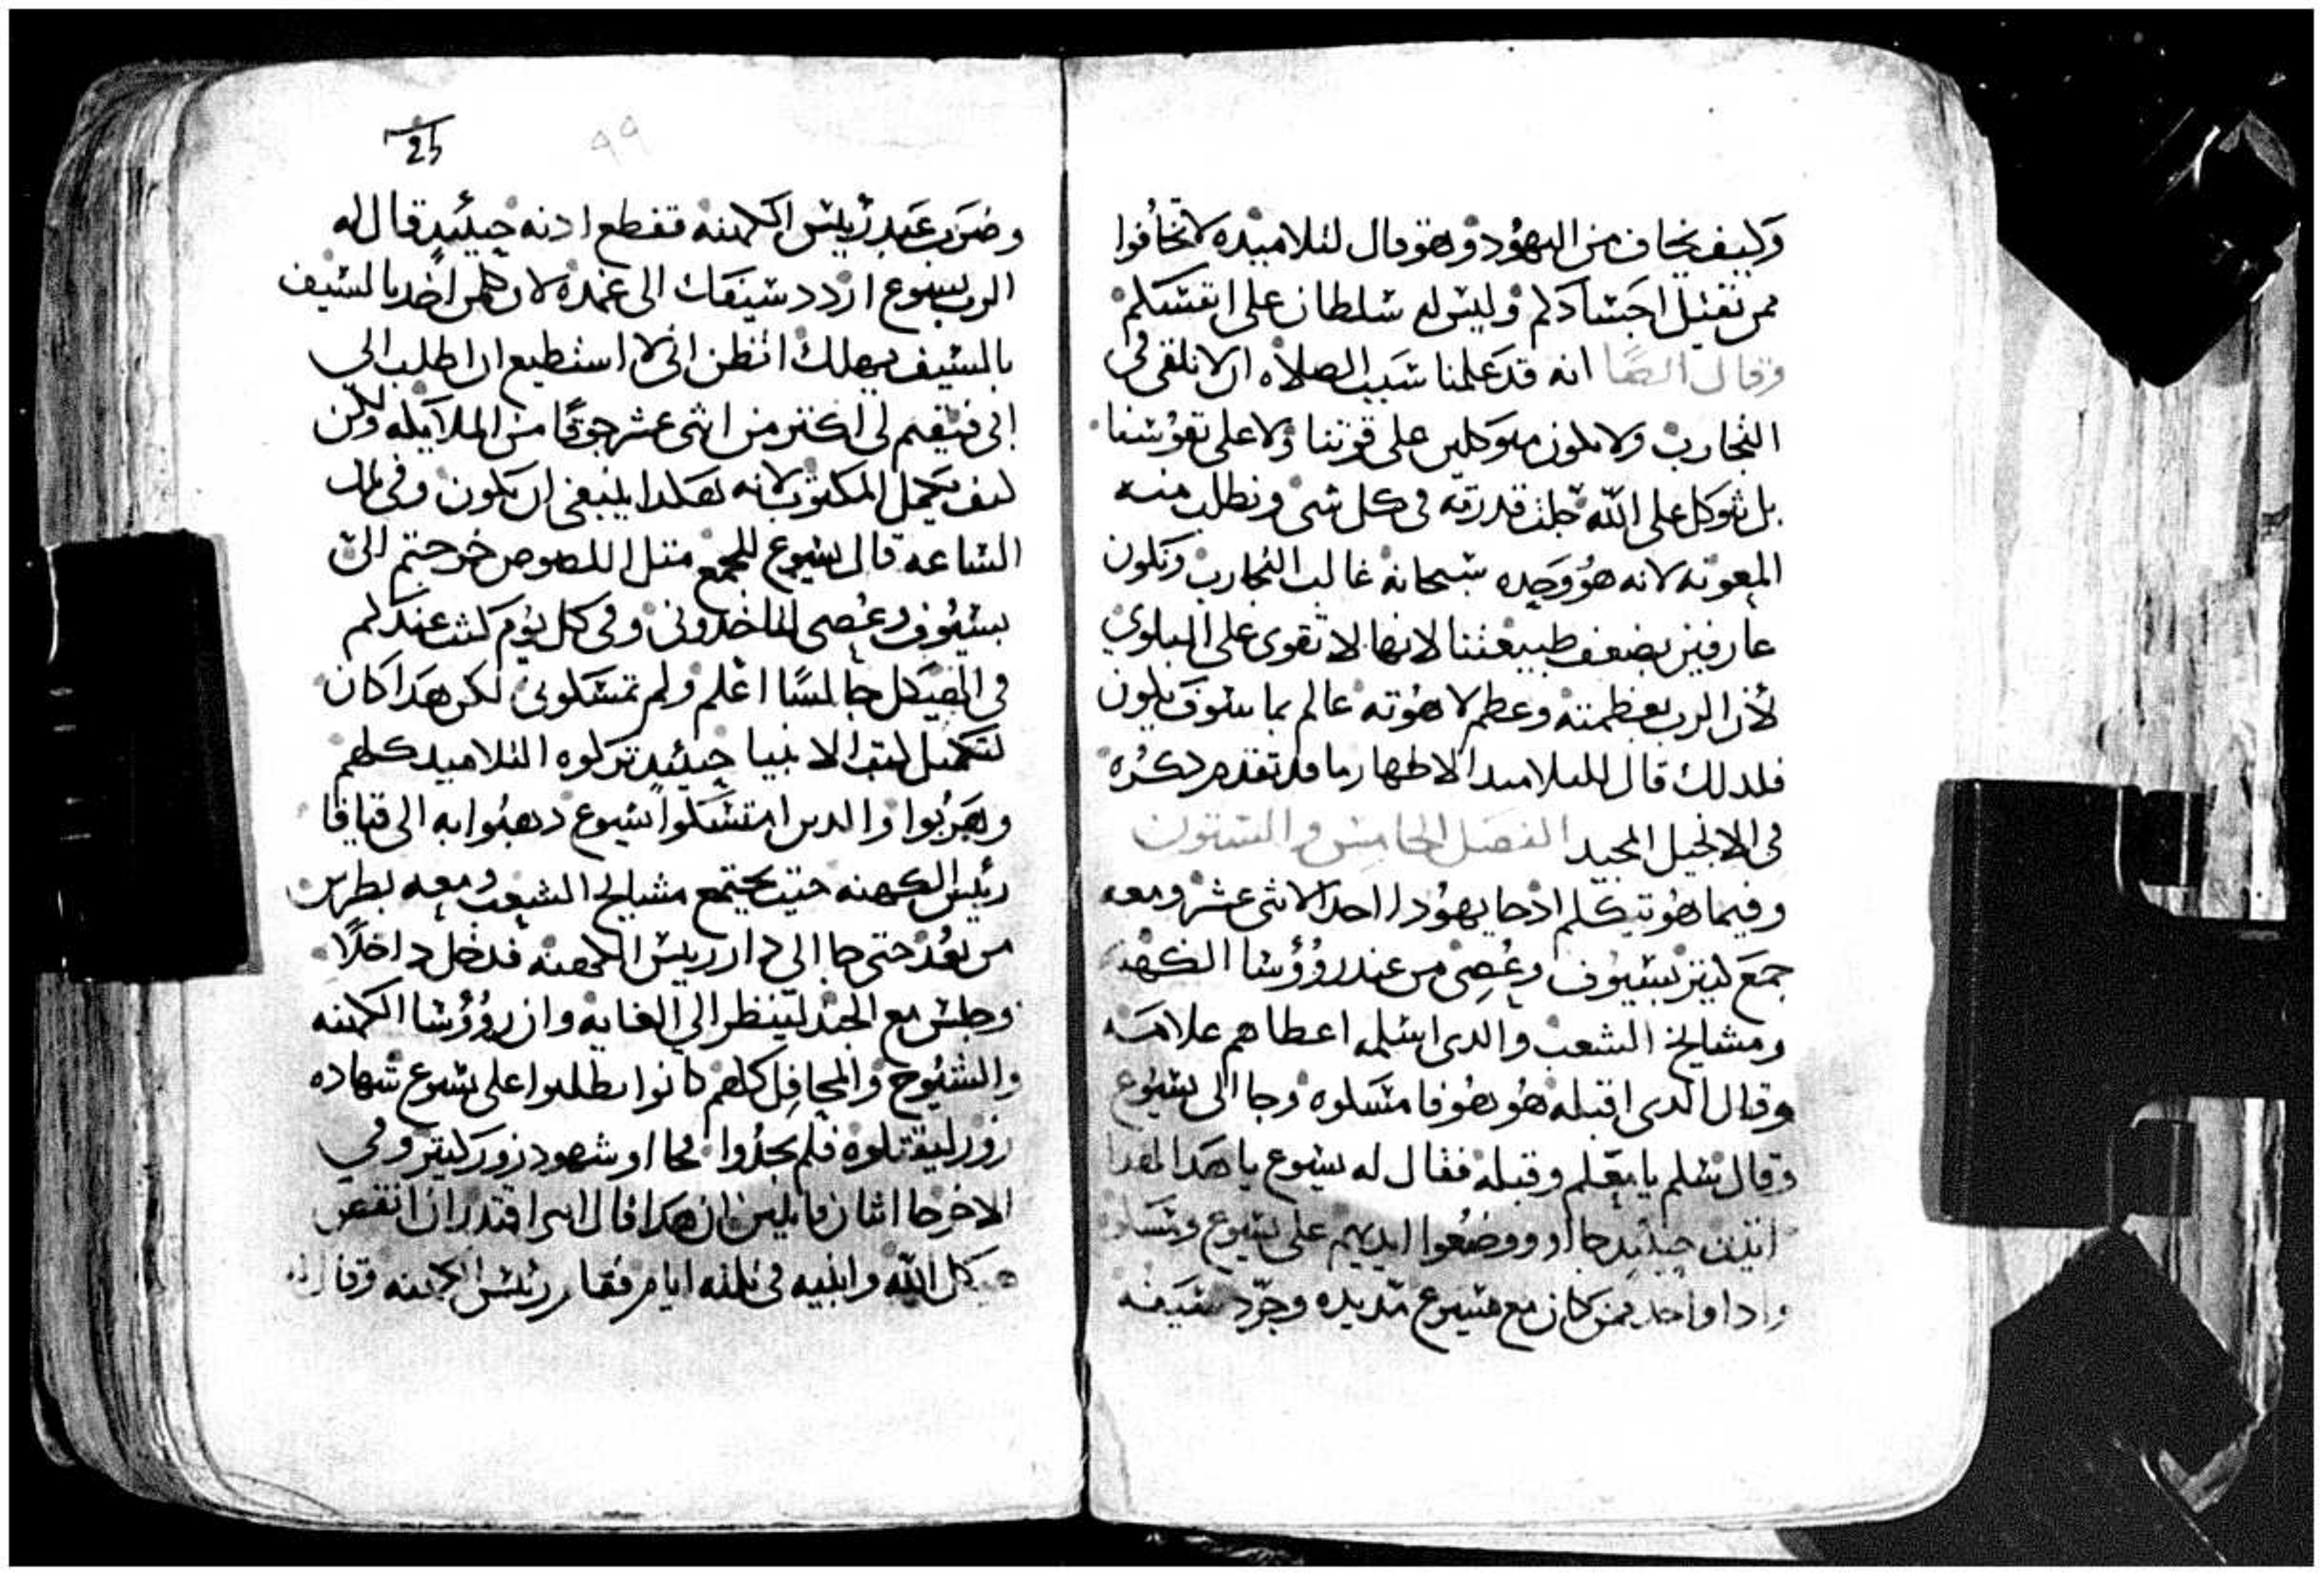 وكيف يخاف من اليهود وهو قال لتلاميده لا تخافوا
ممن تقتيل اجسادكم وليس له سلطان على انفسكم
وقال ايضا انه قد علمنا سبب الصلاه ان لا نلقي في
التجارب ولا نكون متوكلين على قوتنا ولا على نفوسنا
بل نتوكل على الله جلت قدرته في كل شي ونطلب منه
المعونه لانه هو وحده سبحانه غالب التجارب ونكون
عارفين بضعف طبيعتنا لانها لا تقوى على البلوي
لان الرب بعظمته وعظم لاهوته عالم بما سوف يكون
فلدلك قال للتلاميد الاطهار ما قد تقدم دكره
في الانجيل المجيد الفصل الخامس والستون
وفيما هو يتكلم اذ جا يهودا احد الاثنى عشر ومعه
جمع كتير بسيوف وعصي من عند رووسا الكهنه
ومشايخ الشعب والدى اسلمه اعطاهم علامه
وقال الدى اقبله هو هو فامسكوه وجا الى يسوع
وقال سلم يا معلم وقبله فقال له يسوع يا هدا لهدا
اتيت حينيد جااوو ووضعوا ايديهم على يسوع ومسكوه
وادا واحد ممن كان مع يسوع مد يده وجرد سيفه
25
99
وضرب عبد رييس الكهنه فقطع ادنه حينيد قال له
الرب يسوع اردد سيفك الى غمده لان كلمن اخد بالسيف
بالسيف يهلك اتظن اني لا استطيع ان اطلب الي
ابي فيقيم لي اكتر من اثنى عشر جوقا من الملايكه ولكن
كيف يكمل المكتوب لانه هكدا ينبغي ان يكون وفي تلك
الساعه قال يسوع للجمع متل اللصوص خرجتم الي
بسيوف وعصى لتاخدوني وفي كل يوم كنت عندكم
في الهيكل جالسا اعلم ولم تمسكوني لكن هدا كان
لتكميل كتب الانبيا حينيد تركوه التلاميد كلهم
وهربوا والدين امسكوا يسوع دهبوا به الى قيافا
رئيس الكهنه حيت يجتمع مشايخ الشعب ومعه بطرس
من بعد حتى جا الي دار رييس الكهنه فدخل داخلا
وجلس مع الجند لينظر الي الغايه وان رووسا الكهنه
والشيوخ والمحافل كلهم كانوا يطلبوا على يسوع شهاده
زور ليقتلوه فلم يجدوا فجااو شهود زور كتير وفي
الاخر جا اثنان قايلين ان هدا قال اني اقتدر ان انقص
هيكل الله وابنيه في تلته ايام فقام رئيس الكهنه وقال له